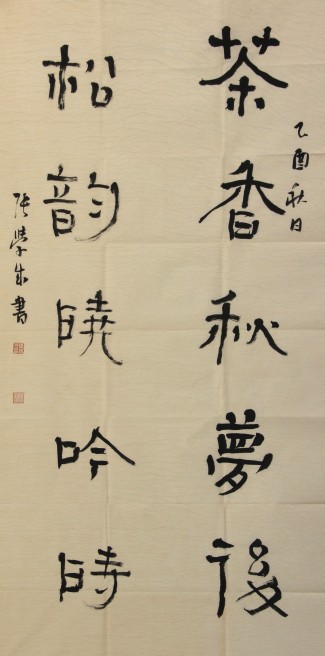 茶香秋夢後
松韵曉吟時
乙酉秋日
張學成書